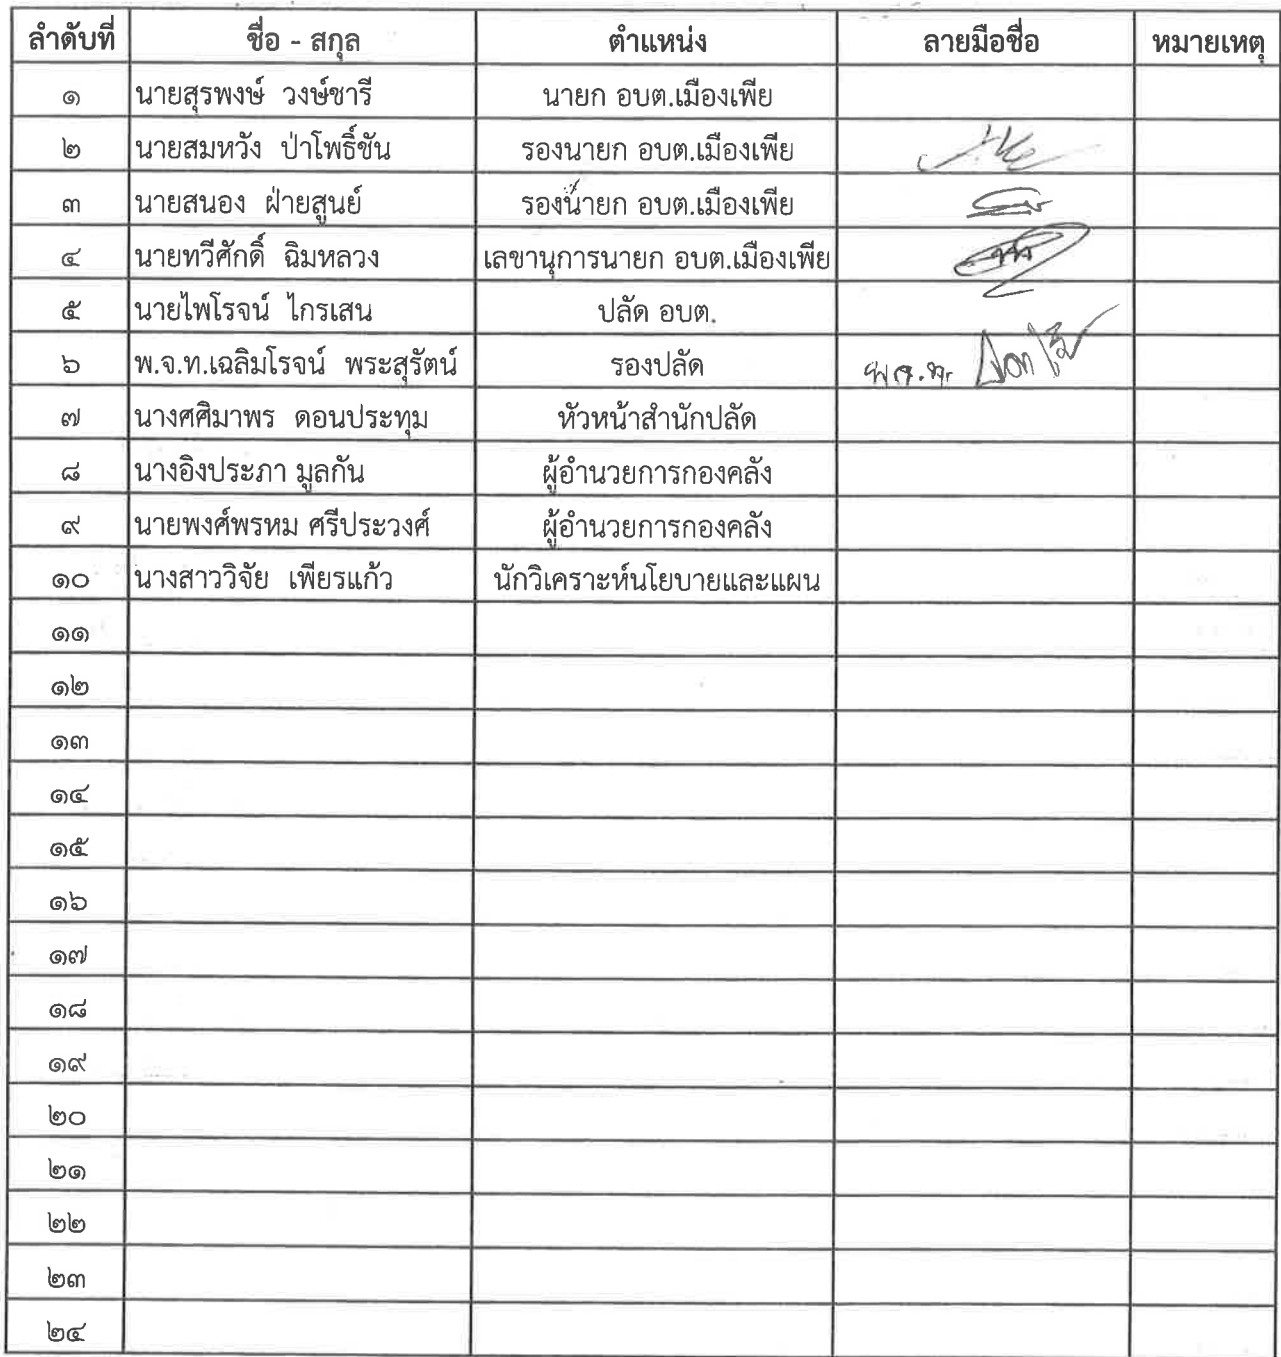 ลำดับที่ ชื่อ - สกุล ตำแหน่ง ลายมือชื่อ หมายเหตุ
๑ นายสุรพงษ์ วงษ์ชารี นายก อบต.เมืองเพีย
๒ นายสมหวัง ป่าโพธิ์ชัน รองนายก อบต.เมืองเพีย
๓ นายสนอง ฝ่ายสูนย์ รองนายก อบต.เมืองเพีย
๔ นายทวีศักดิ์ ฉิมหลวง เลขานุการนายก อบต.เมืองเพีย
๕ นายไพโรจน์ ไกรเสน ปลัด อบต.
๖ พ.จ.ท.เฉลิมโรจน์ พระสุรัตน์ รองปลัด พ.จ.ท.
๗ นางศศิมาพร ดอนประทุม หัวหน้าสำนักปลัด
๘ นางอิงประภา มูลกัน ผู้อำนวยการกองคลัง
๙ นายพงศ์พรหม ศรีประวงศ์ ผู้อำนวยการกองคลัง
๑๐ นางสาววิจัย เพียรแก้ว นักวิเคราะห์นโยบายและแผน
๑๑
๑๒
๑๓
๑๔
๑๕
๑๖
๑๗
๑๘
๑๙
๒๐
๒๑
๒๒
๒๓
๒๔